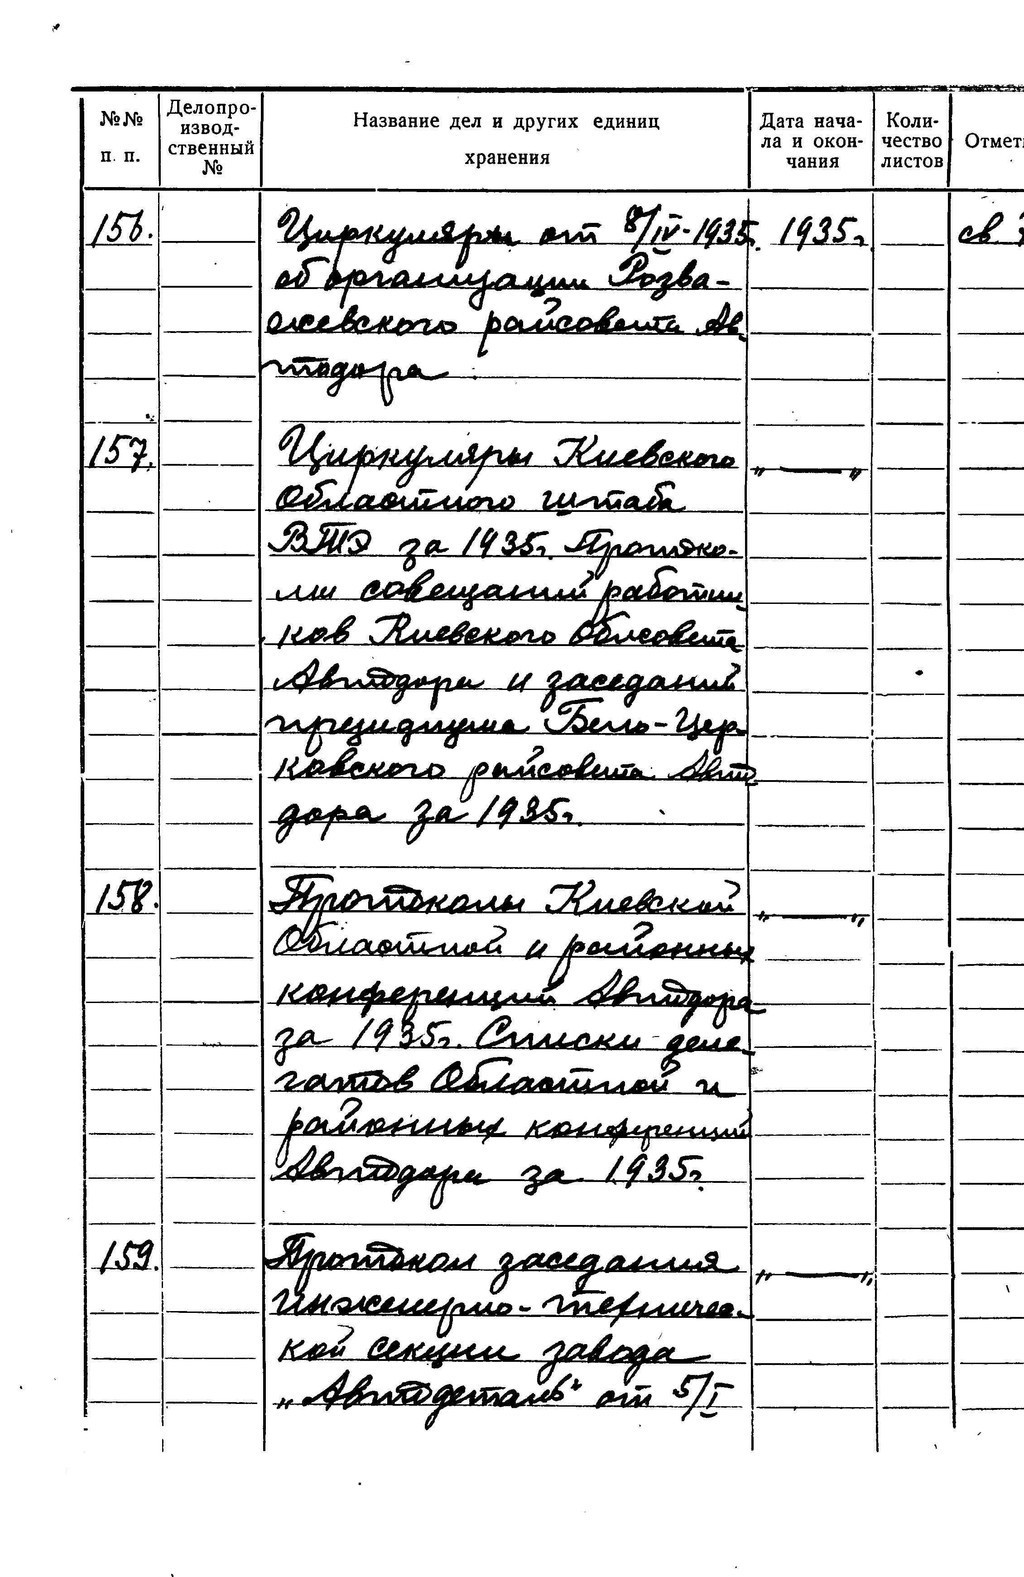 №№ п. п. | Делопро-изводственный № | Название дел и других единиц хранения | Дата нача-ла и окон-чания | Коли-чество листов | Отмет
156. Циркуляры от 8/IV-1935г. 1935г. св.
об организации Розва-
жевского райсовета Ав-
тодора.
157. Циркуляры Киевского „ — „
Областного штаба
ВТЭ за 1935г. Протоко-
лы совещаний работни-
ков Киевского Облсовета
Автодора и заседаний
президиума Бело-Цер-
ковского райсовета Авто
дора за 1935г.
158. Протоколы Киевской „ — „
Областной и районных
конференций Автодора
за 1935г. Списки деле-
гатов Областной и
районных конференций
Автодора за 1935г.
159. Протокол заседания „ — „
инженерно-техничес-
кой секции завода
„Автодеталь" от 5/I